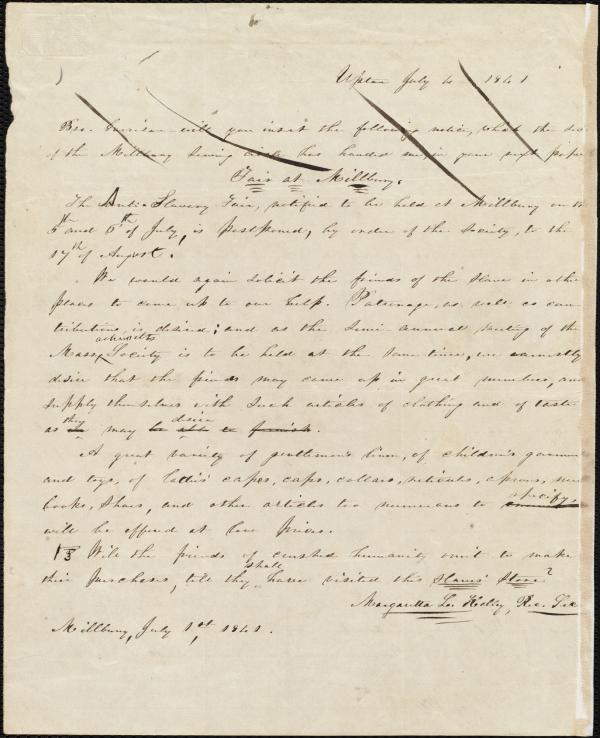 Upton July 4 1841
Bro. Garrison will you insert the following notice, which the
of the Millbury Sewing Circle has handed me, in your next pape
Fair at Millbury.
The Anti-Slavery Fair, notified to be held at Millbury on th
5th and 6th of July, is postponed, by order of the Society, to the
17th of August.
We would again solicit the friends of the slave in other
places to come up to our help. Patronage, as well as con-
tributions, is desired; and as the Semi annual meeting of the
Massachusetts Society is to be held at the same time, we earnestly
desire that the friends may come up in great numbers, and
supply themselves with such articles of clothing and of taste
as they may be able to furnish. desire
A great variety of gentlemen's linen, of children's garmen
and toys, of ladies' capes, caps, collars, reticules, aprons, nee
books, Shoes, and other articles too numerous to specify,
will be offered at low prices.
Will the friends of crushed humanity omit to make
their purchases, till they shall have visited this Slaves' Store?
Margaretta L. Rec. Sec
Millbury, July 1st, 1841.